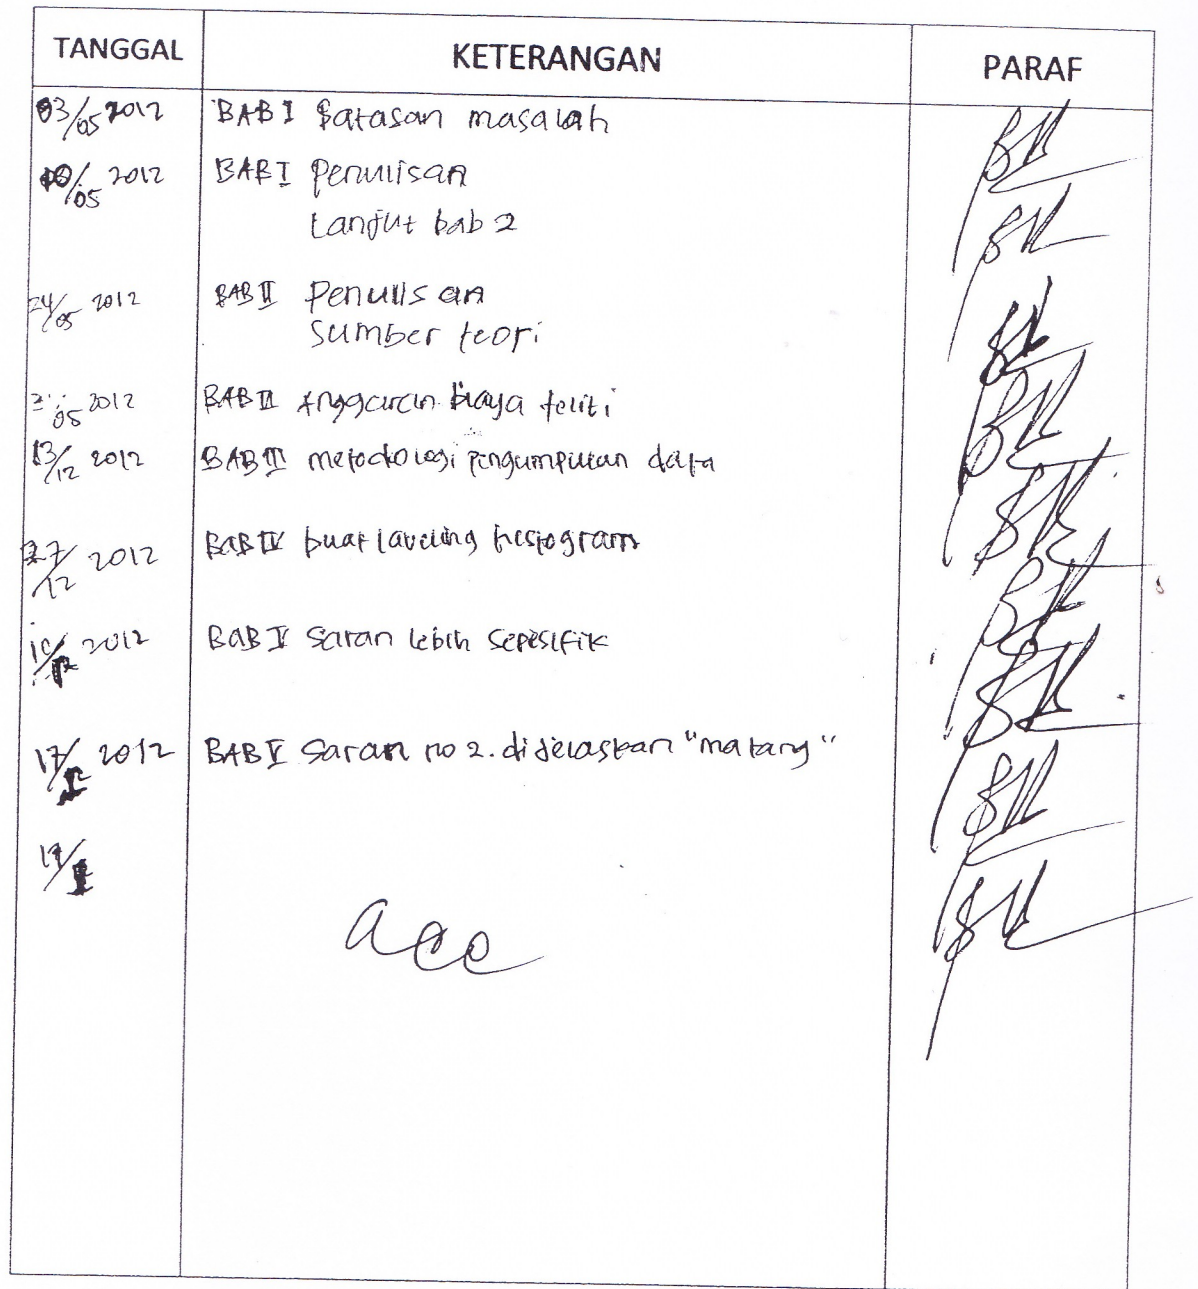 TANGGAL KETERANGAN PARAF
03/05 2012 BAB I Batasan masalah
10/05 2012 BAB I Penulisan
Lanjut bab 2
24/05 2012 BAB II Penulisan
Sumber teori
05 2012 BAB II Anggaran biaya teliti
13/12 2012 BAB III metodologi pengumpulan data
27/12 2012 BAB IV buat histogram
2012 BAB V Saran lebih sepesifik
17/ 2012 BAB V Saran no 2. di jelaskan "matang"
acc